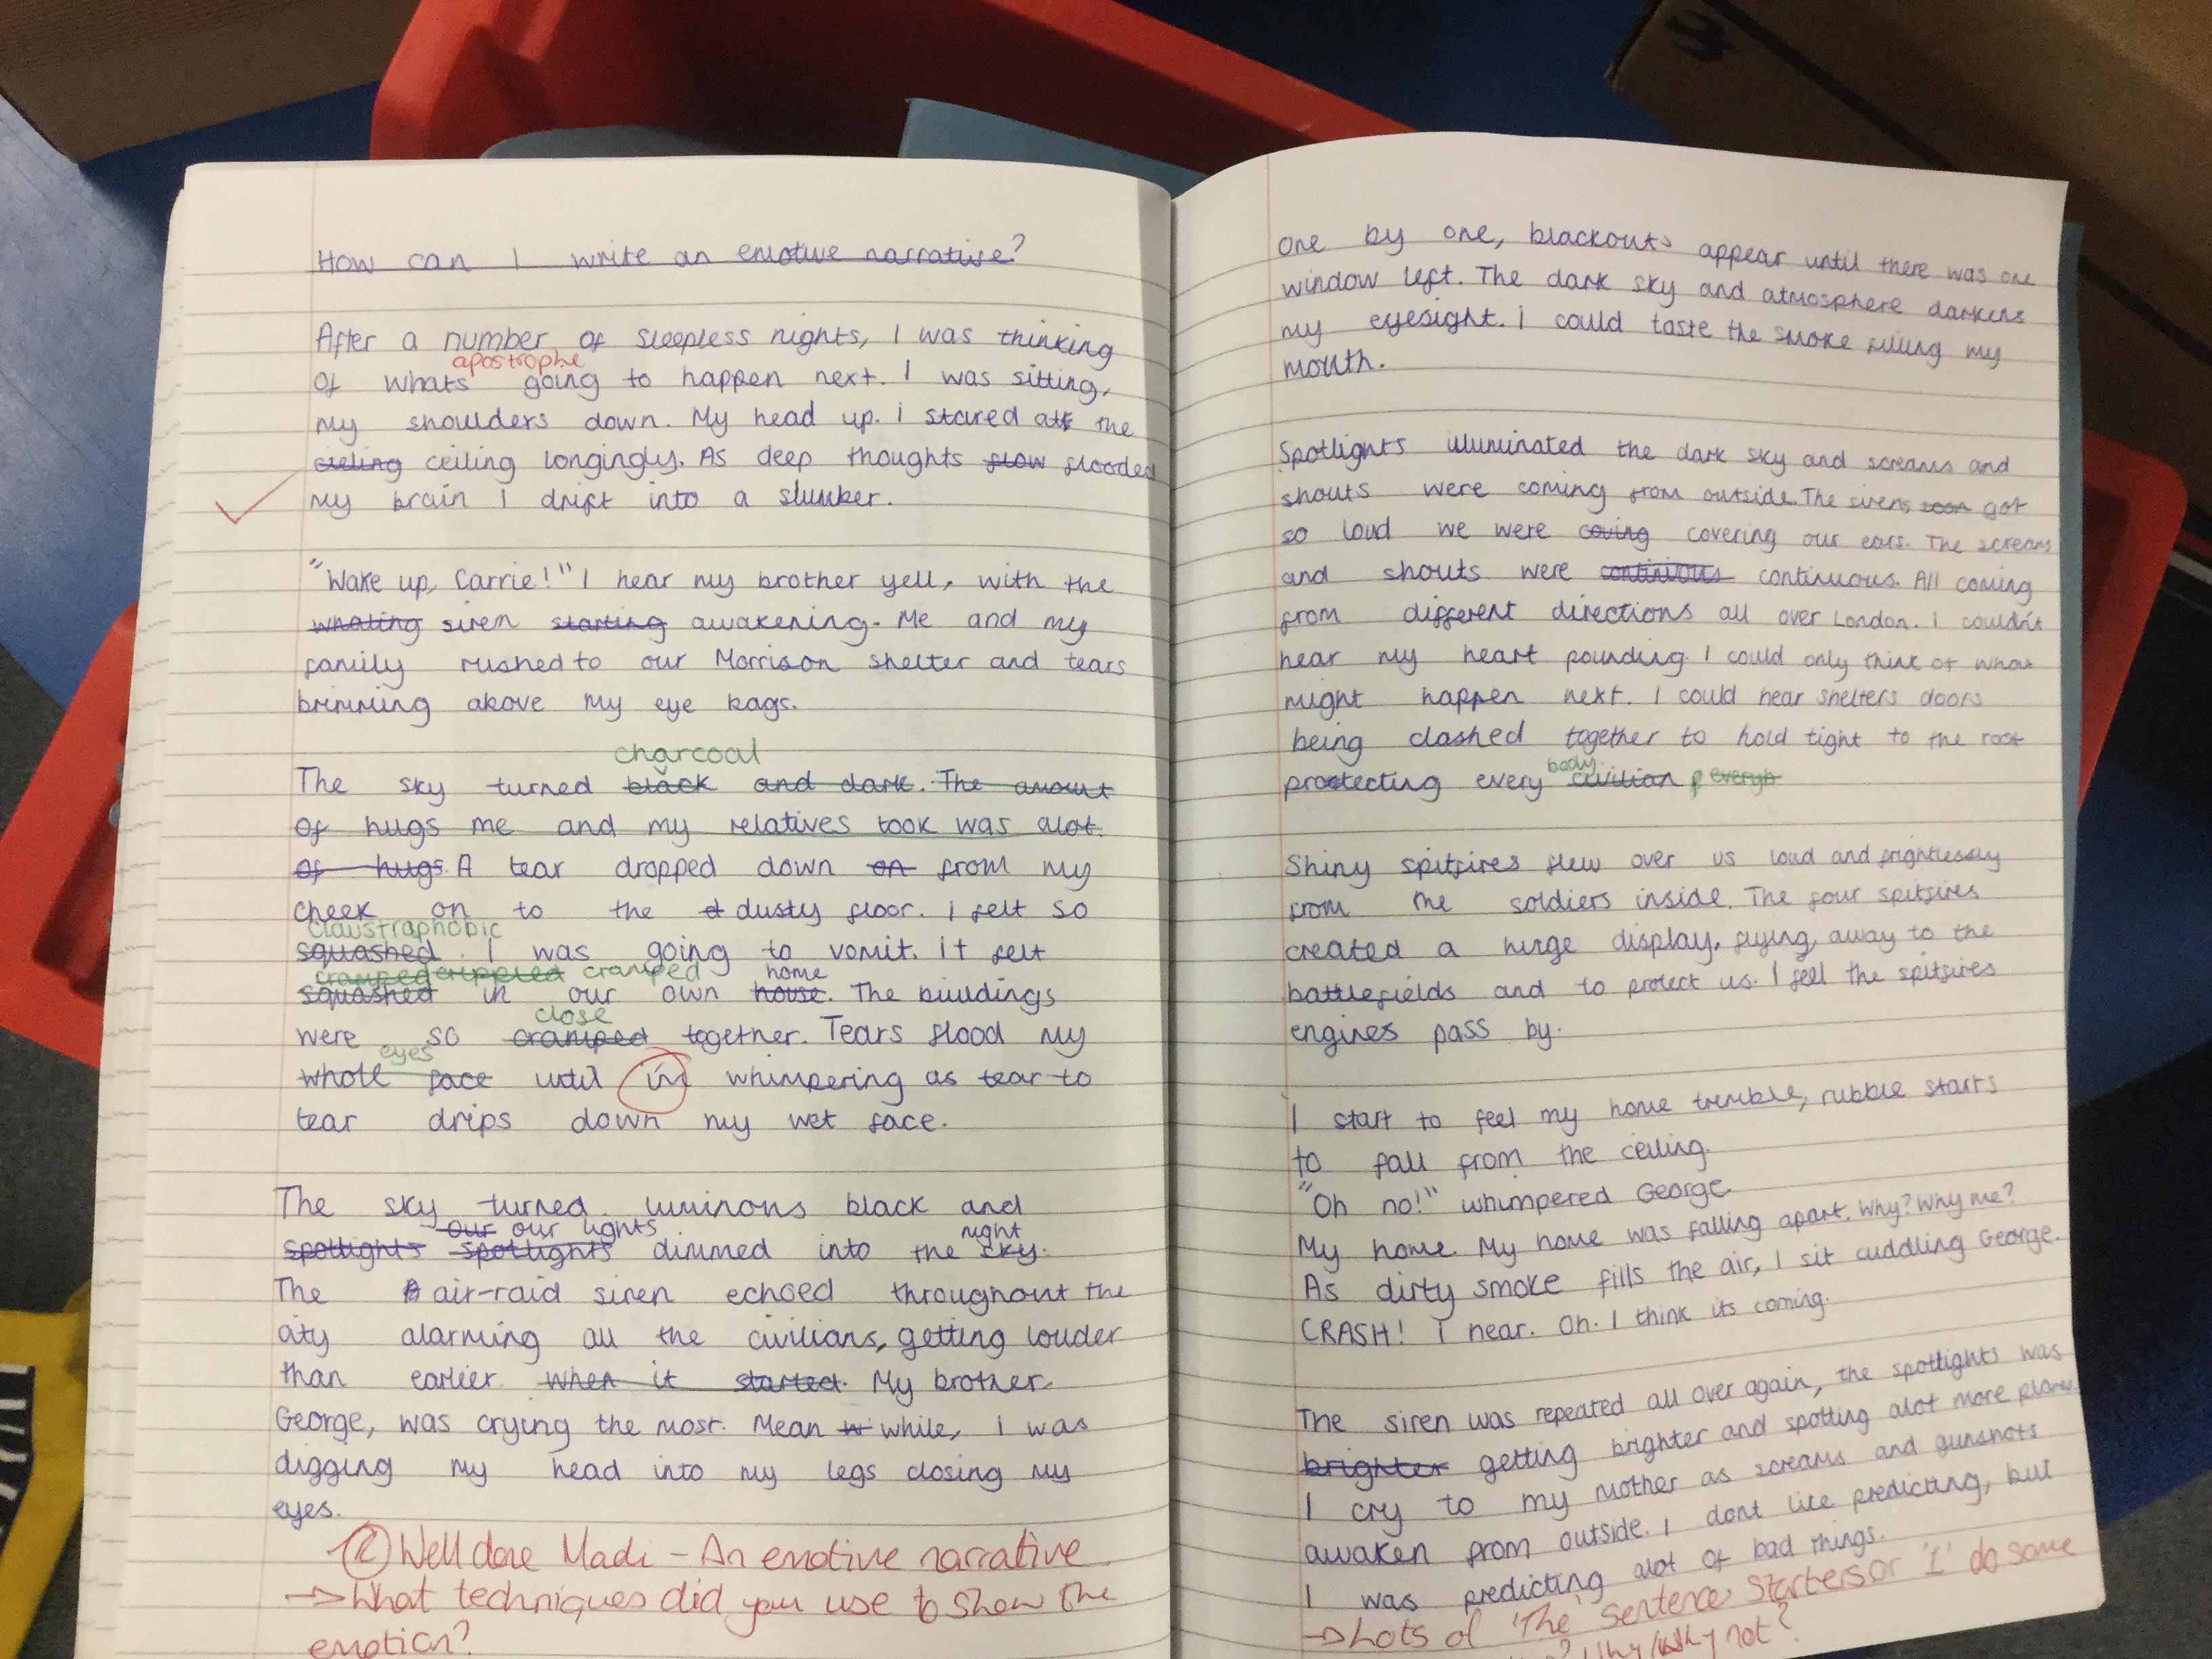 How can I write an emotive narrative?
After a number of sleepless nights, I was thinking
apostrophe
of whats going to happen next. I was sitting,
my shoulders down. My head up. i stared att the
cieling ceiling longingly. As deep thoughts flow flooded
my brain I drift into a slumber.
"Wake up, Carrie!" I hear my brother yell, with the
whaling siren starting awakening. Me and my
family rushed to our Morrison shelter and tears
brimming above my eye bags.
charcoal
The sky turned black and dark. The amount
of hugs me and my relatives took was alot.
of hugs. A tear dropped down on from my
cheek on to the d dusty floor. I felt so
claustraphobic
squashed I was going to vomit. It felt
cramped crippled cramped home
squashed in our own house. The buildings
close
were so cramped together. Tears flood my
eyes
whole face until im whimpering as tear to
tear drips down my wet face.
The sky turned luminous black and
our our lights night
spotlights spotlights dimmed into the sky.
The A air-raid siren echoed throughout the
city alarming all the civilians, getting louder
than earlier when it started. My brother
George, was crying the most. Mean w while, I was
digging my head into my legs closing my
eyes.
Well done Madi - An emotive narrative
→ What techniques did you use to show the
emotion?
One by one, blackouts appear until there was one
window left. The dark sky and atmosphere darkens
my eyesight. i could taste the smoke filling my
mouth.
Spotlights illuminated the dark sky and screams and
shouts were coming from outside. The sirens soon got
so loud we were coving covering our ears. The screams
and shouts were continious continuous. All coming
from different directions all over London. I couldn't
hear my heart pounding. I could only think of what
might happen next. I could hear shelters doors
being clashed together to hold tight to the roof
body
protecting every civilian
Shiny spitfires flew over us loud and frightlessly
from the soldiers inside. The four spitfires
created a huge display, flying, away to the
battlefields and to protect us. I feel the spitfires
engines pass by.
I start to feel my home tremble, rubble starts
to fall from the ceiling.
"Oh no!" whimpered George.
My home. My home was falling apart. Why? Why me?
As dirty smoke fills the air, I sit cuddling George.
CRASH! I hear. Oh. I think its coming.
The siren was repeated all over again, the spotlights was
brighter getting brighter and spotting alot more planes
I cry to my mother as screams and gunshots
awaken from outside. I dont like predicting, but
I was predicting alot of bad things.
→ Lots of 'The' sentence starters or 'I' do some
? Why/why not?